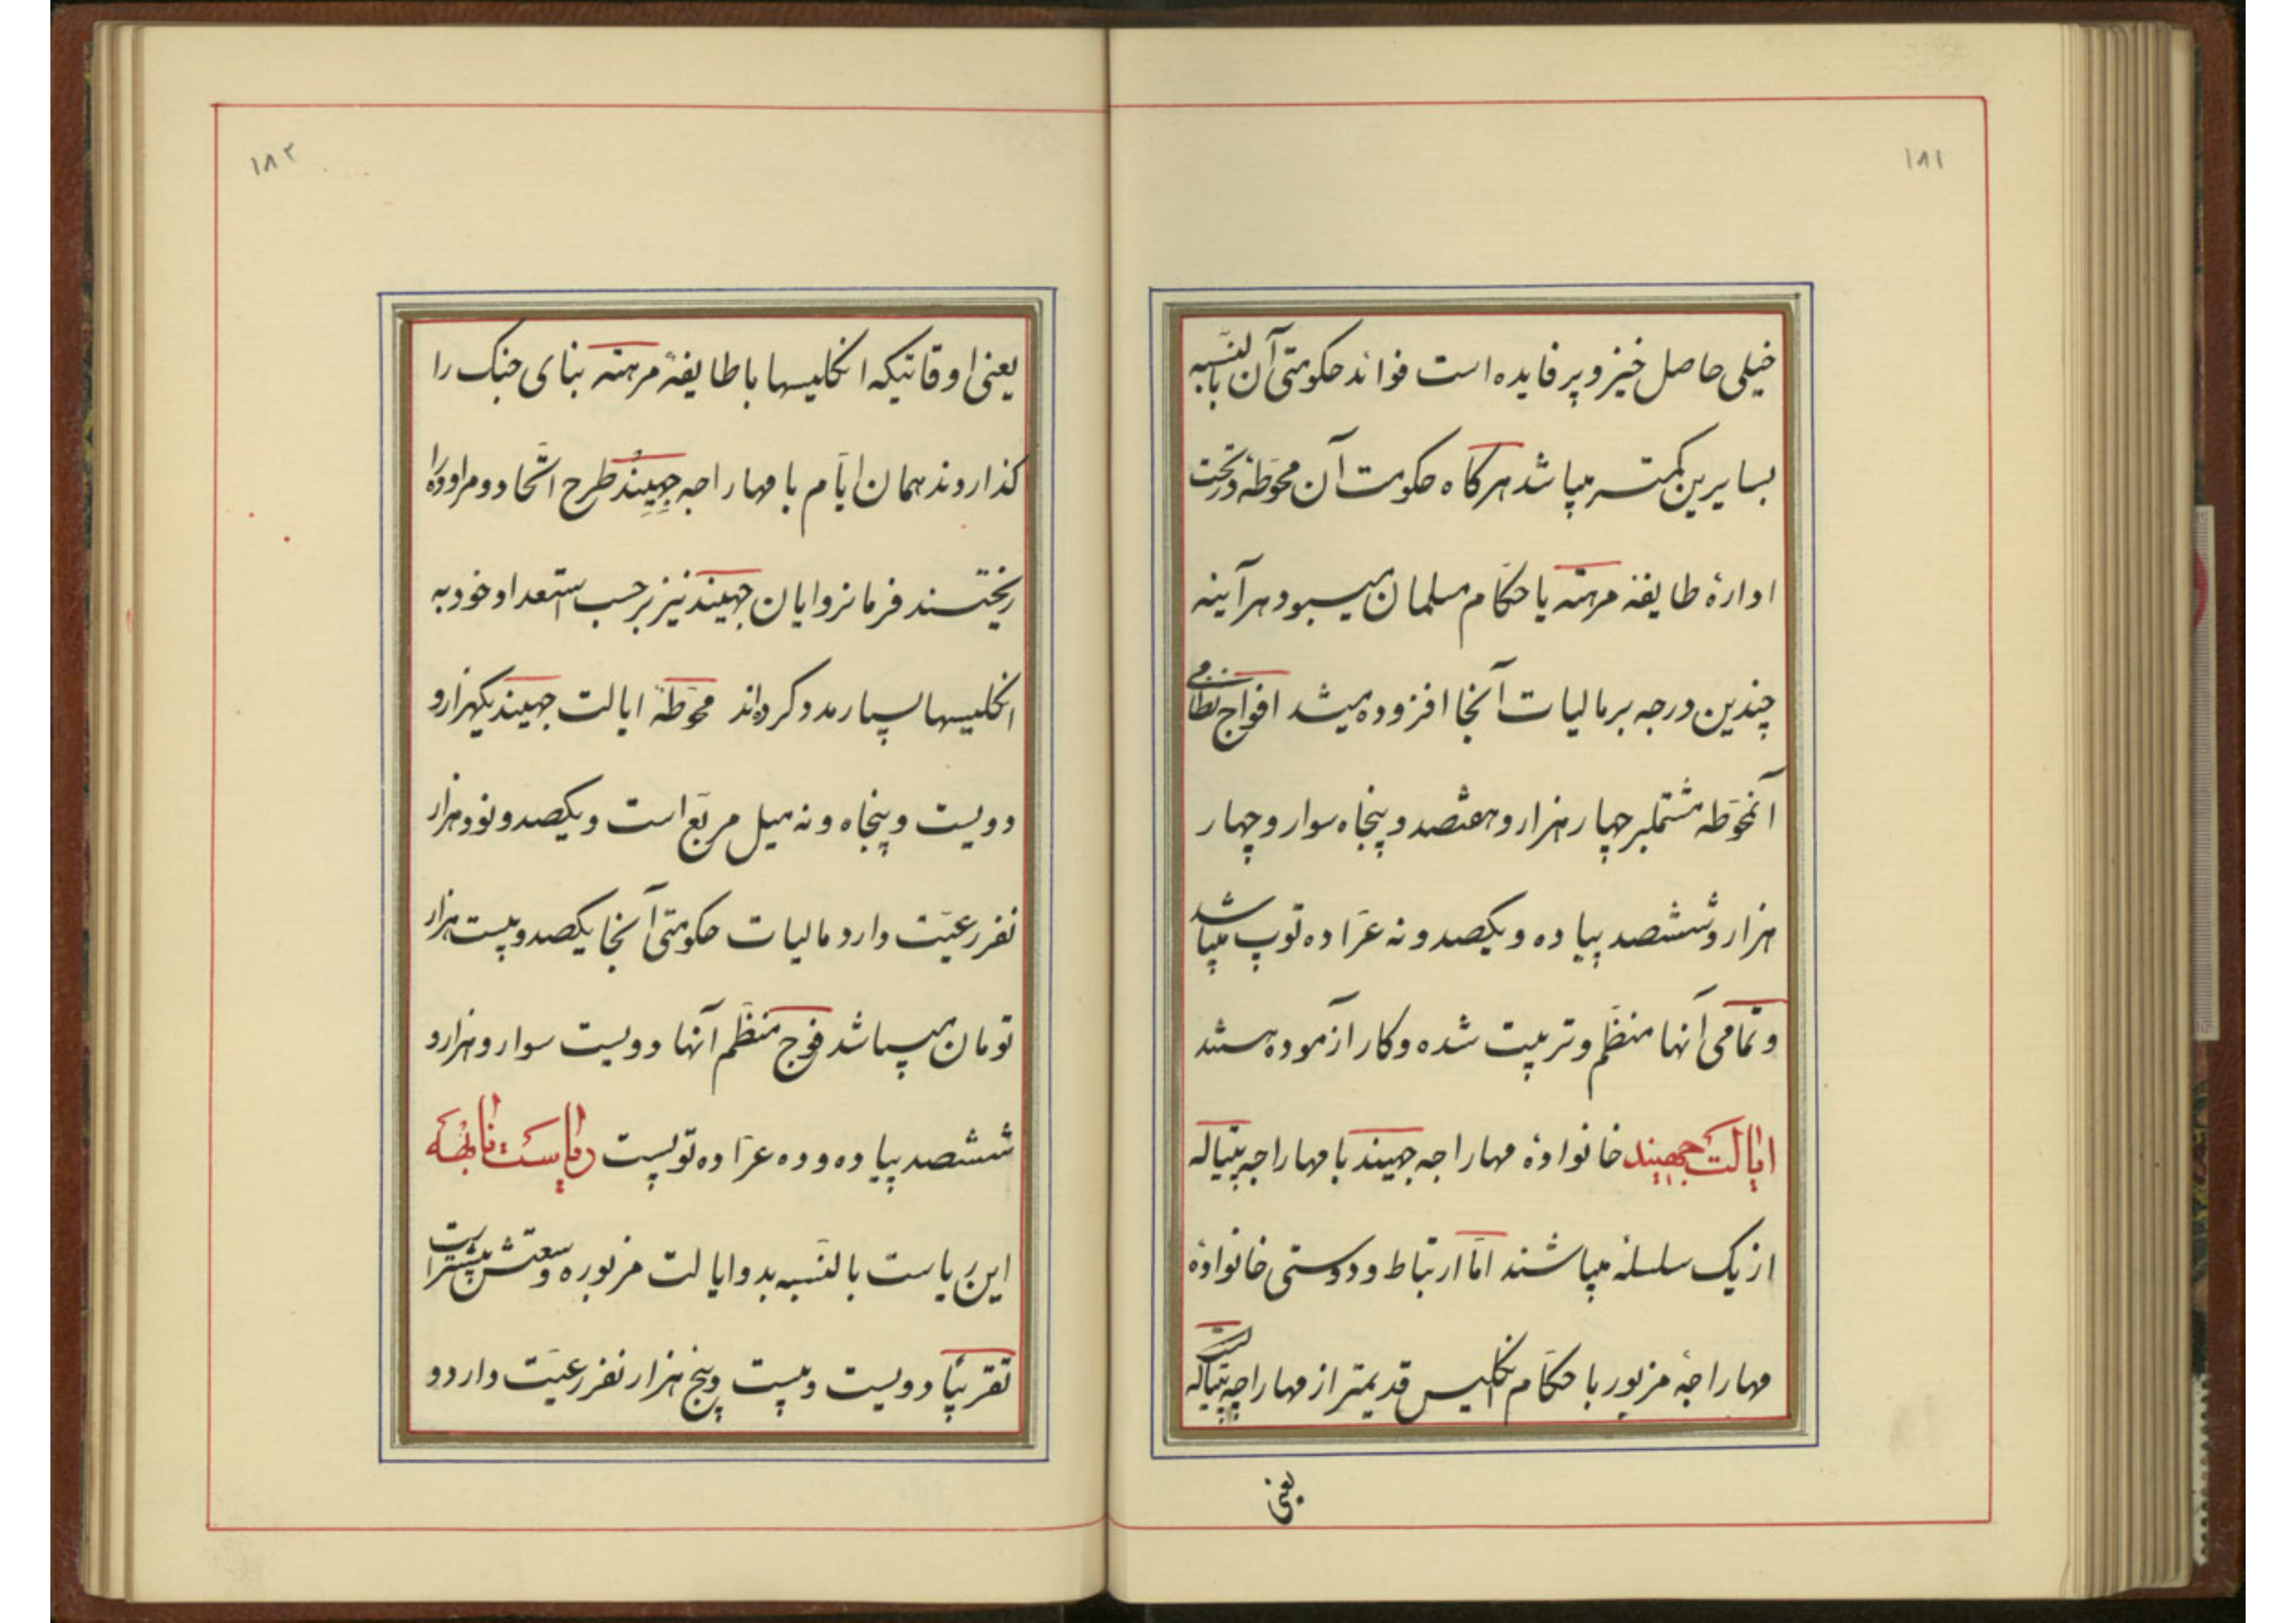 ۱۸۱
خیلی حاصل خیز و پر فایده است فوائد حکومتی آن بالنسبه
بسایرین کمتر میباشد هرگاه حکومت آن محوطه در تحت
ادارهٔ طایفهٔ مرهته یا حکّام مسلمان میبود هرآینه
چندین درجه بر مالیات آنجا افزوده میشد افواج نظامی
آنمحوّطه مشتملبر چهار هزار و هفتصد و پنجاه سوار و چهار
هزار و ششصد پیاده و یکصد و نه عرّاده توپ میباشد
و تمامی آنها منظّم و تربیت شده و کار آزموده هستند
ایالت جهیند خانوادهٔ مهاراجه جهیند با مهاراجه پتیاله
از یک سلسله میباشند امّا ارتباط و دوستی خانوادهٔ
مهاراجهٔ مزبور با حکّام انگلیس قدیمتر از مهاراجه پتیاله است
یعنی
۱۸۲
یعنی اوقاتیکه انگلیسها با طایفهٔ مرهته بنای جنک را
گذاردند همان ایّام با مهاراجه جهیند طرح اتّحاد و مراوده را
ریختند فرمانروایان جهیند نیز بر حسب استعداد خود به
انگلیسها بسیار مدد کرده‌اند محوّطهٔ ایالت جهیند یکهزار و
دویست و پنجاه و نه میل مربّع است و یکصد و نود هزار
نفر رعیّت دارد مالیات حکومتی آنجا یکصد و بیست هزار
تومان میباشد فوج منظّم آنها دویست سوار و هزار و
ششصد پیاده و ده عرّاده توپست ریاست نابهه
این ریاست بالنّسبه بدو ایالت مزبوره وسعتش بیشتر است
تقریباً دویست و بیست و پنج هزار نفر رعیّت دارد و